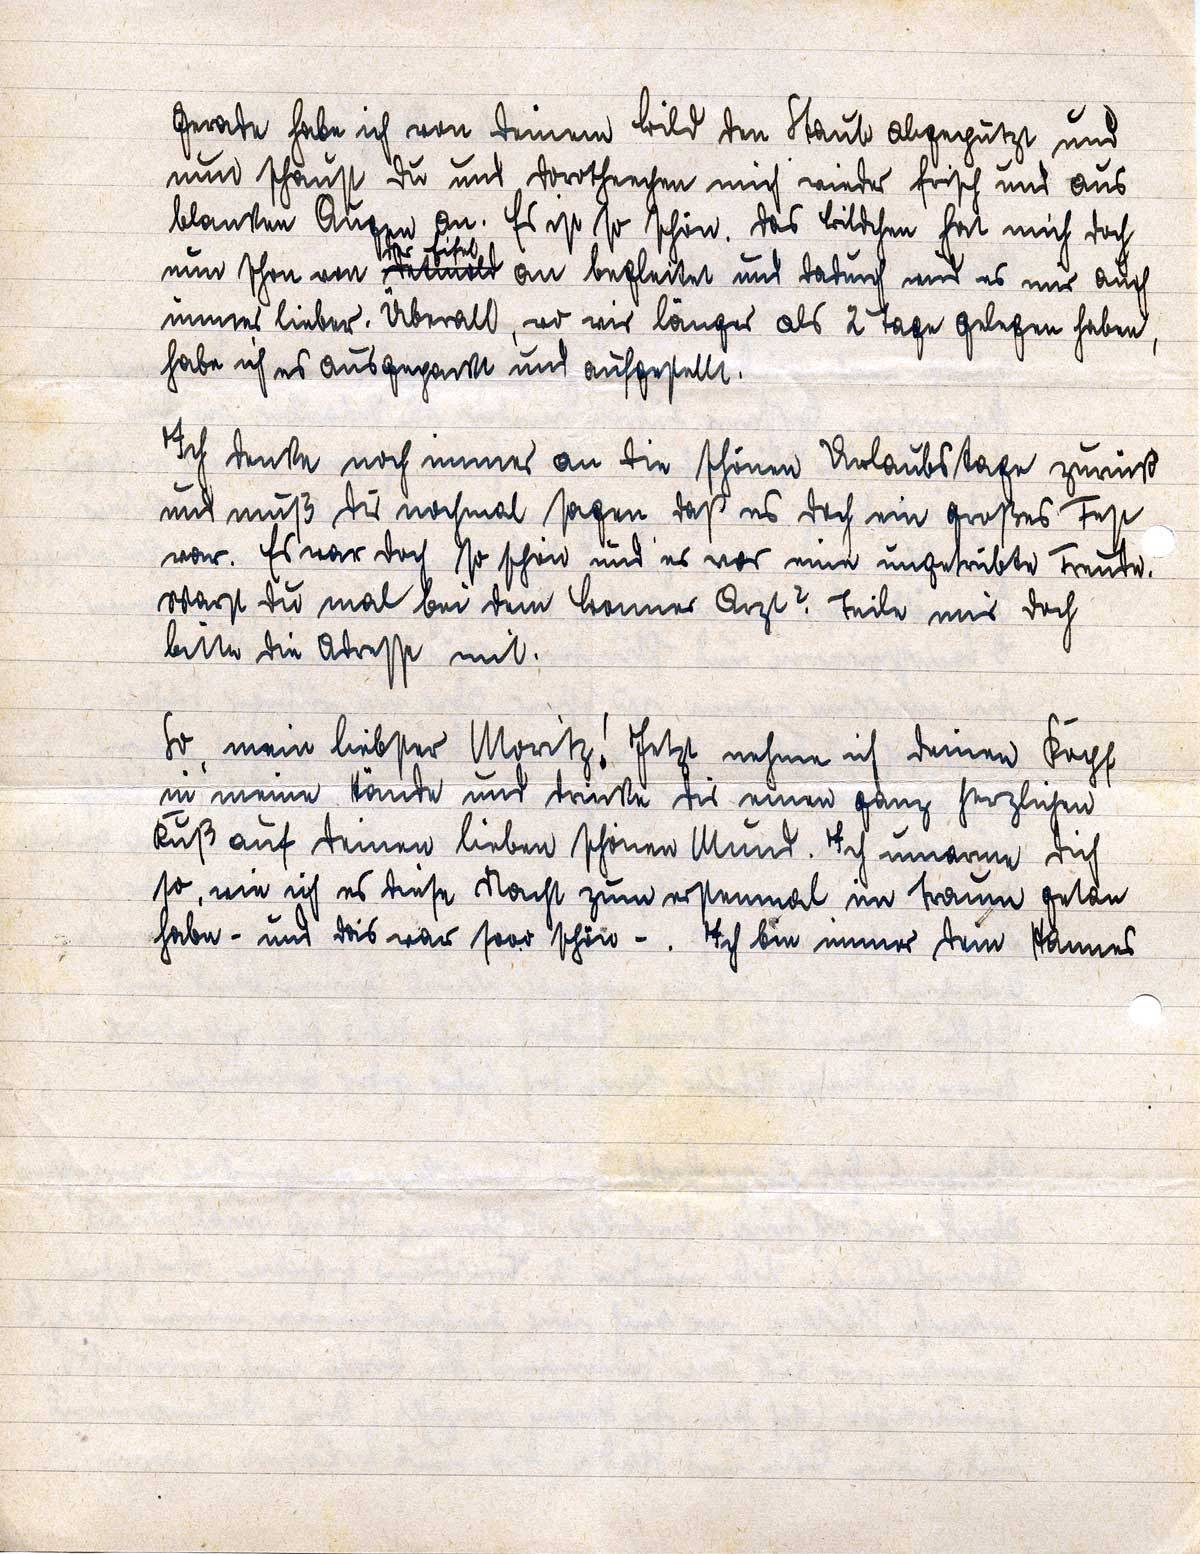 Gerade habe ich von Deinem Bild den Staub abgeputzt und
nun schaust Du und Dorotheechen mich wieder frisch und aus
blanken Augen an. Es ist so schön. Das Bildchen hat mich doch
der Eifel
nun schon von Detmold an begleitet und dadurch wird es mir auch
immer lieber. Überall, wo wir länger als 2 Tage gelegen haben,
habe ich es ausgepackt und aufgestellt.
Ich denke noch immer an die schönen Urlaubstage zurück
und muß Dir nochmal sagen daß es doch ein großes Fest
war. Es war doch so schön und es war eine ungetrübte Freude.
Warst Du mal bei dem Bonner Arzt? Teile mir doch
bitte die Adresse mit.
So, mein liebster Moritz! Jetzt nehme ich Deinen Kopf
in meine Hände und drücke Dir einen ganz herzlichen
Kuß auf Deinen lieben schönen Mund. Ich umarme Dich
so, wie ich es diese Nacht zum erstenmal im Traum getan
habe - und das war sooo schön - . Ich bin immer Dein Hannes